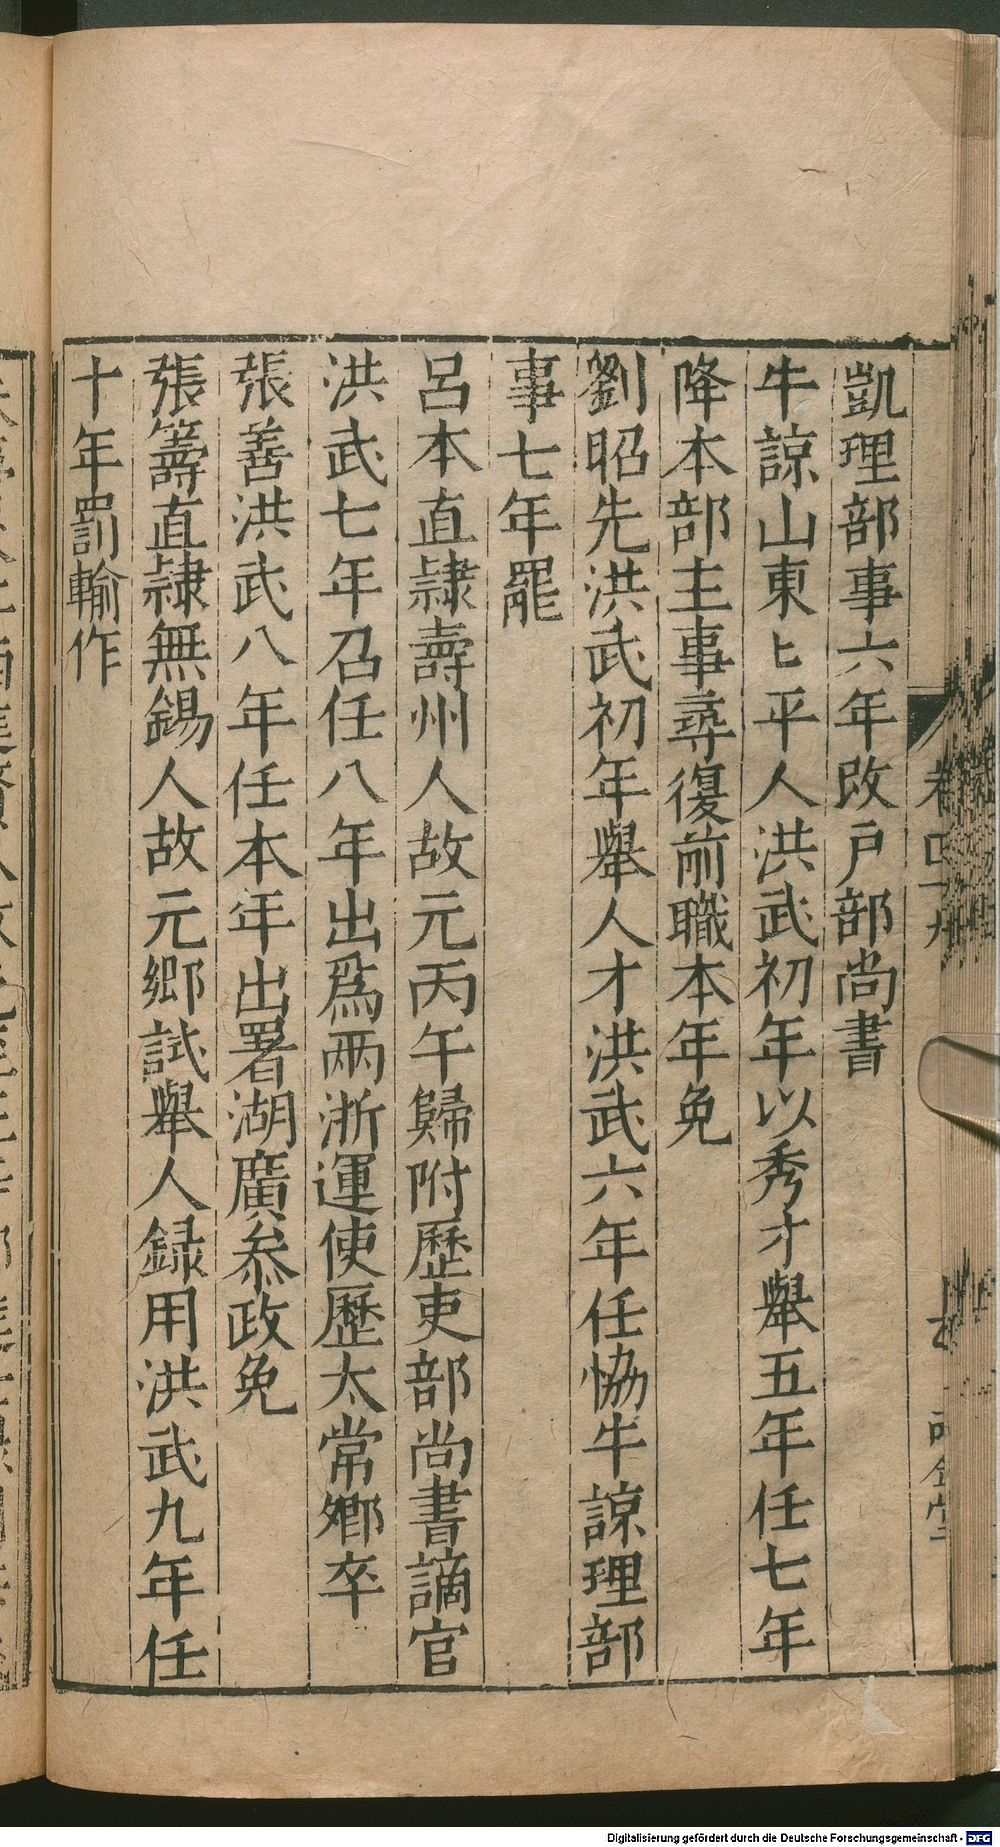 凱理部事六年改戶部尚書
牛諒山東ヒ平人洪武初年以秀才舉五年任七年
降本部主事尋復前職本年免
劉昭先洪武初年舉人才洪武六年任恊牛諒理部
事七年罷
呂本直隷壽州人故元丙午歸附歷吏部尚書謫官
洪武七年召任八年出爲兩浙運使歷太常鄉卒
張善洪武八年任本年出署湖廣叅政免
張籌直隷無錫人故元鄉試舉人録用洪武九年任
十年罰輸作
Digitalisierung gefördert durch die Deutsche Forschungsgemeinschaft - DFG